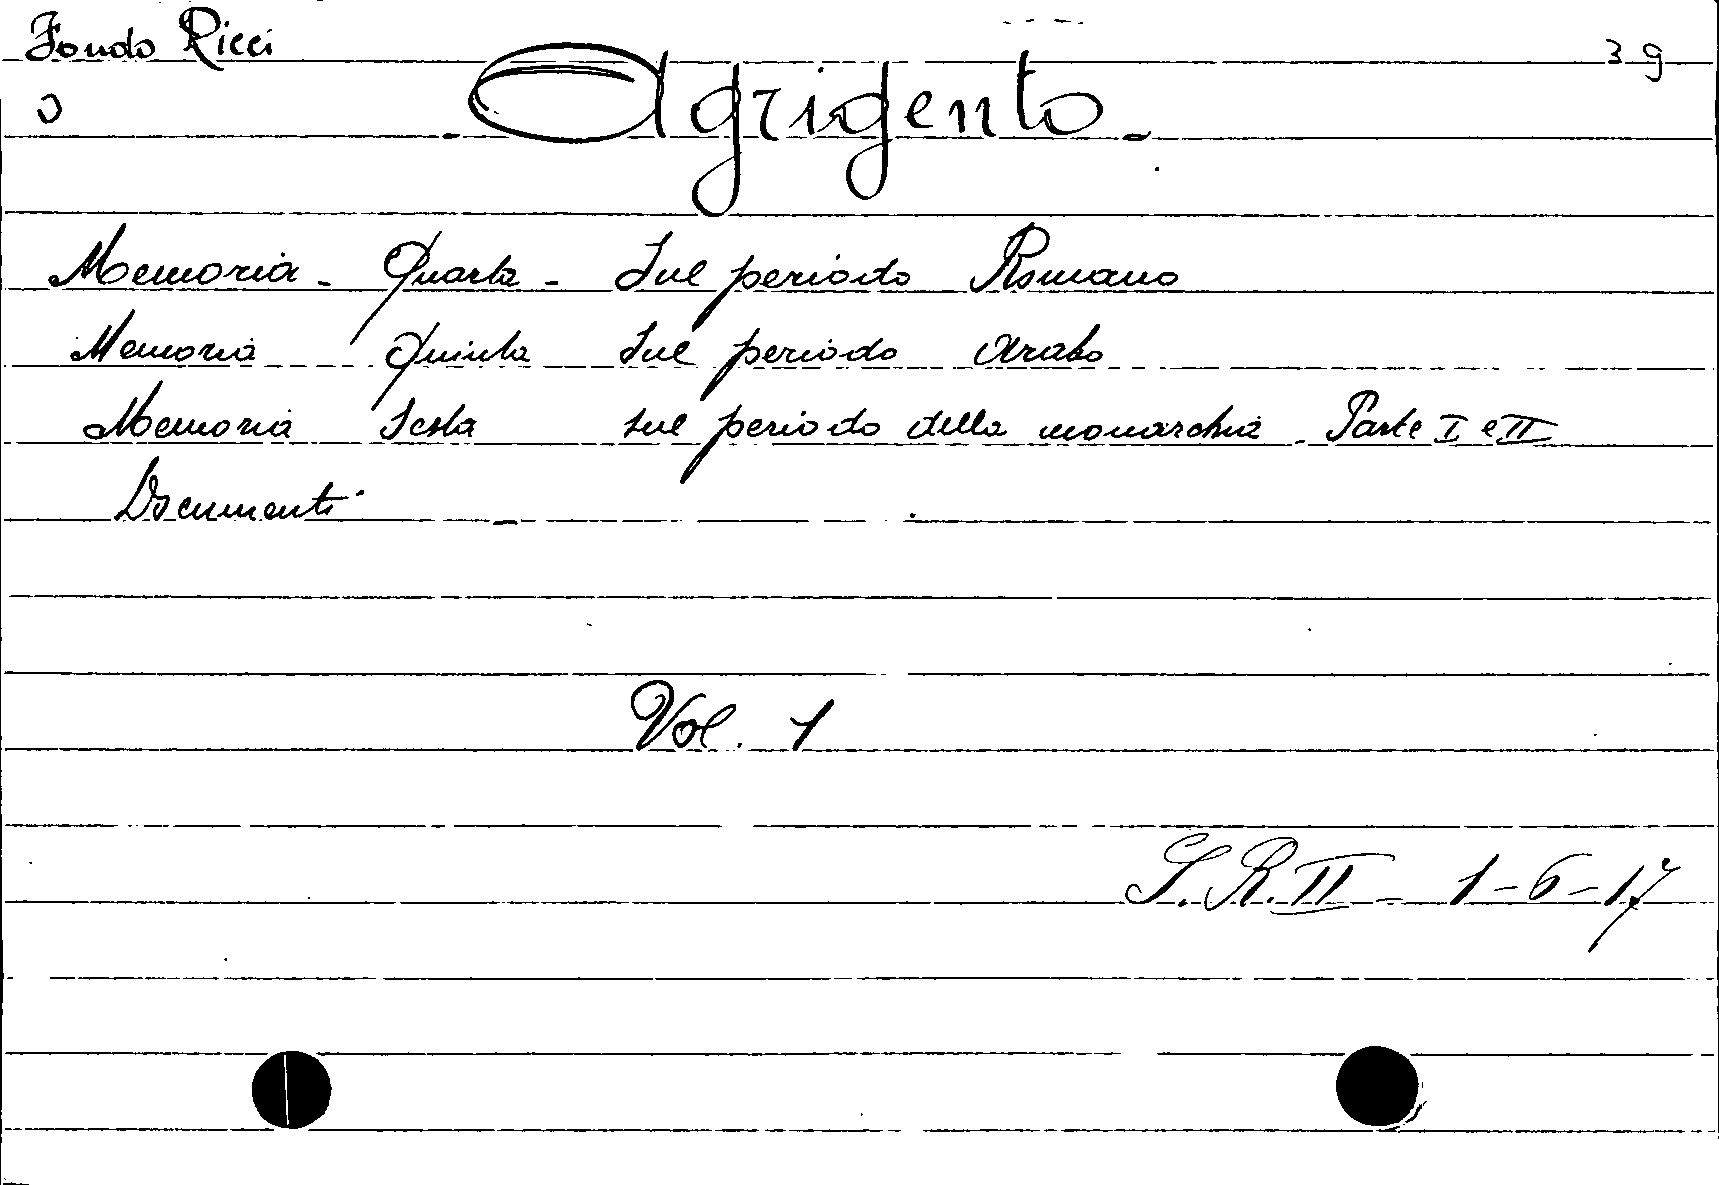 Fondo Ricci
39
- Agrigento -
Memoria - Quarta - Sul periodo Romano
Memoria Quinta Sul periodo Arabo
Memoria Sesta sul periodo della monarchia - Parte I e II
Documenti
Vol. 1
S.R.II - 1-6-17